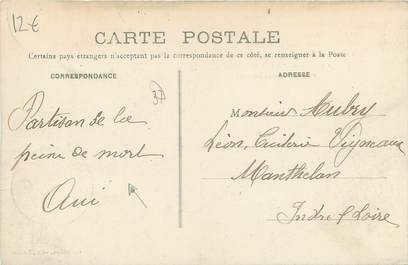 12€
CARTE POSTALE
Certains pays étrangers n'acceptant pas la correspondance de ce côté, se renseigner à la Poste
CORRESPONDANCE
ADRESSE
37
Partisan de la
peine de mort
Monsieur Aubry
Léon,
Manthelan
Indre & Loire